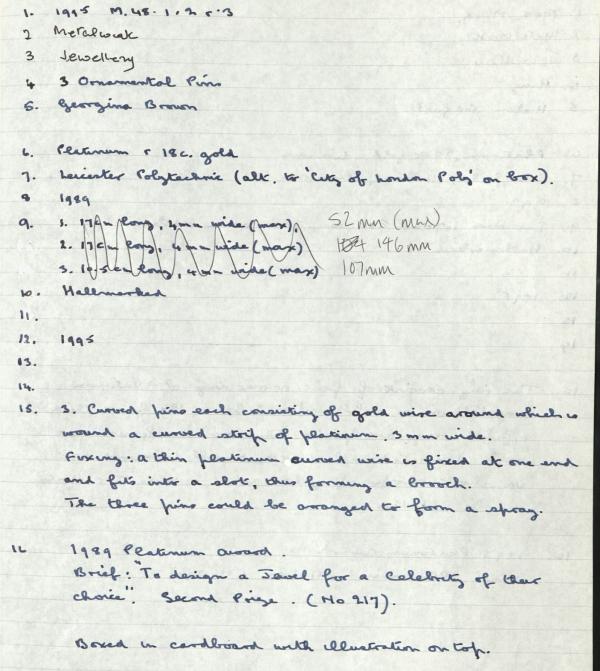 1. 1995 M.48.1.2 & 3
2 Metalwork
3 Jewellery
4 3 Ornamental Pins
5. Georgina Brown
6. Platinum & 18c. gold
7. Leicester Polytechnic (alt. to 'City of London Poly' on box).
8 1989
9. 1. 17cm long, 4mm wide (max). 52mm (max)
2. 17cm long, 4mm wide (max) 146mm
3. 10.5cm long, 4mm wide (max) 107mm
10. Hallmarked
11.
12. 1995
13.
14.
15. 3. Curved pins each consisting of gold wire around which is
wound a curved strip of platinum. 3mm wide.
Fixing: a thin platinum curved wire is fixed at one end
and fits into a slot, thus forming a brooch.
The three pins could be arranged to form a spray.
16 1989 Platinum award.
Brief: "To design a Jewel for a Celebrity of their
choice". Second Prize. (No 217).
Boxed in cardboard with illustration on top.